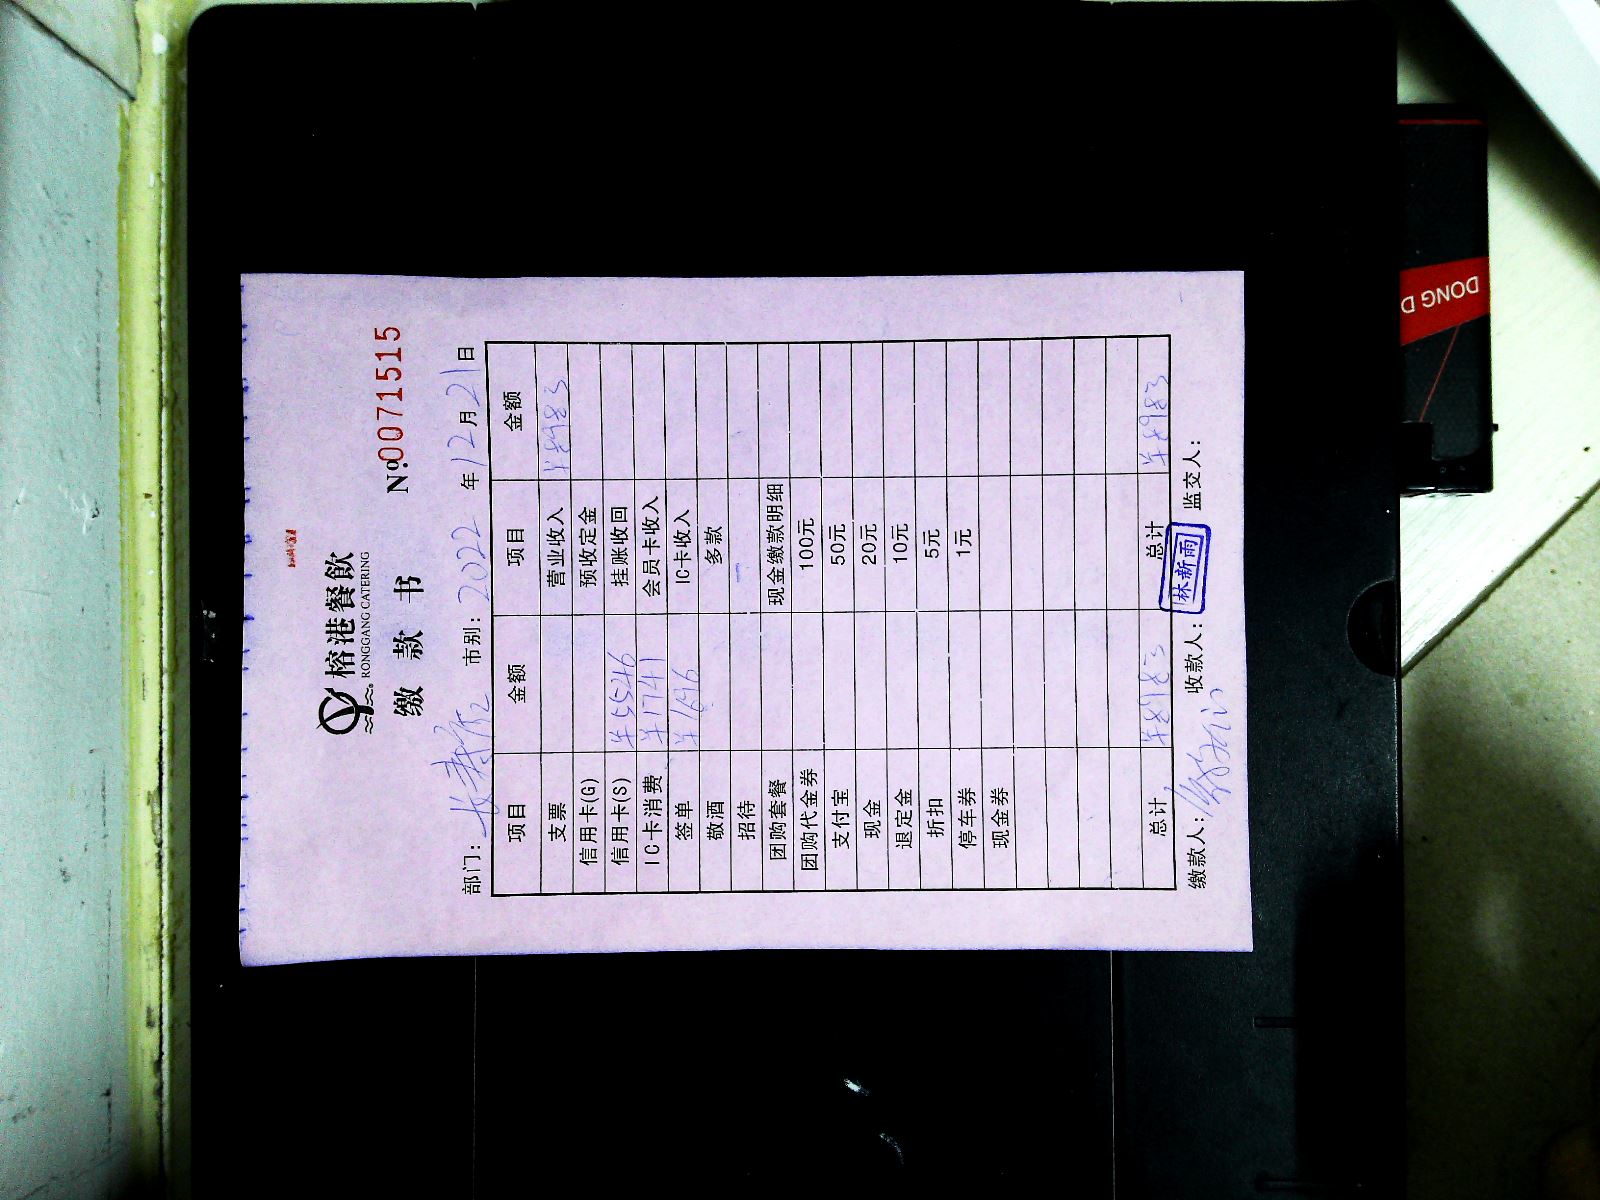 榕港餐飲
RONGGANG CATERING
缴 款 书 No.0071515
部门: 市别: 2022 年 12 月 21 日
项目 金额 项目 金额
支票 营业收入 ¥8983
信用卡(G) 预收定金
信用卡(S) ¥5546 挂账收回
IC卡消费 ¥1741 会员卡收入
签单 ¥1696 IC卡收入
敬酒 多款
招待
团购套餐 现金缴款明细
团购代金券 100元
支付宝 50元
现金 20元
退定金 10元
折扣 5元
停车券 1元
现金券
总计 ¥8983 总计 ¥8983
缴款人: 收款人: 林新雨 监交人:
DONG D